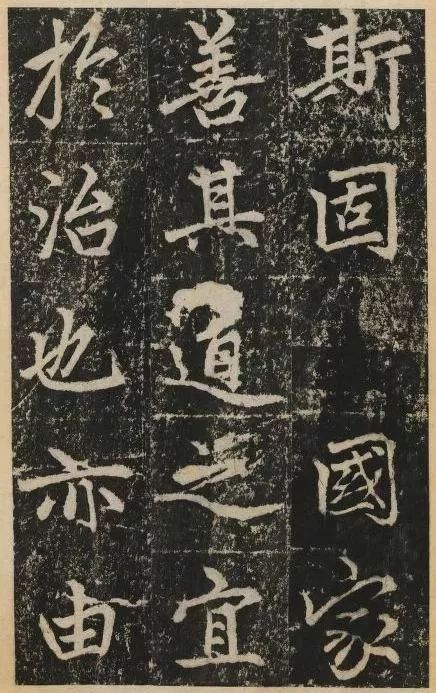 斯固國家
善其道之宜
於治也亦由